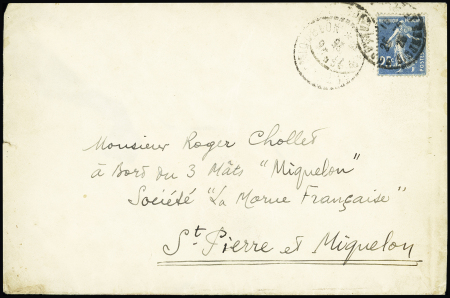 Monsieur Roger Chollet
à Bord du 3 Mâts "Miquelon"
Société "La Morue Française"
St Pierre et Miquelon